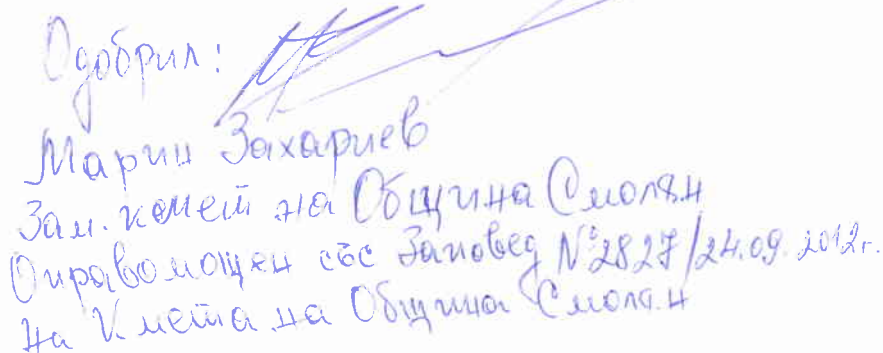 Одобрил:
Марин Захариев
Зам. кмет на Община Смолян
Оправомощен със Заповед №2827/24.09.2012г.
На Кмета на Община Смолян